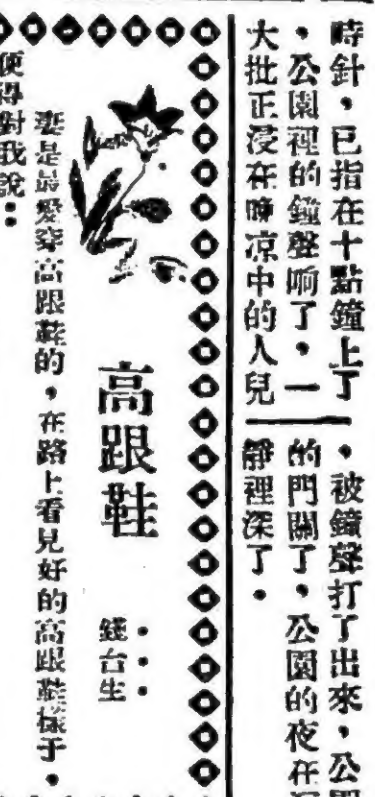 時針,已指在十點鐘上了
,公園裡的鐘聲响了,一
大批正浸在晚凉中的人兒
,被鐘聲打了出來,公園
的門關了,公園的夜在
靜裡深了。
高跟鞋
錢台生
妻是最愛穿高跟鞋的,在路上看見好的高跟鞋樣子,
便得對我說: